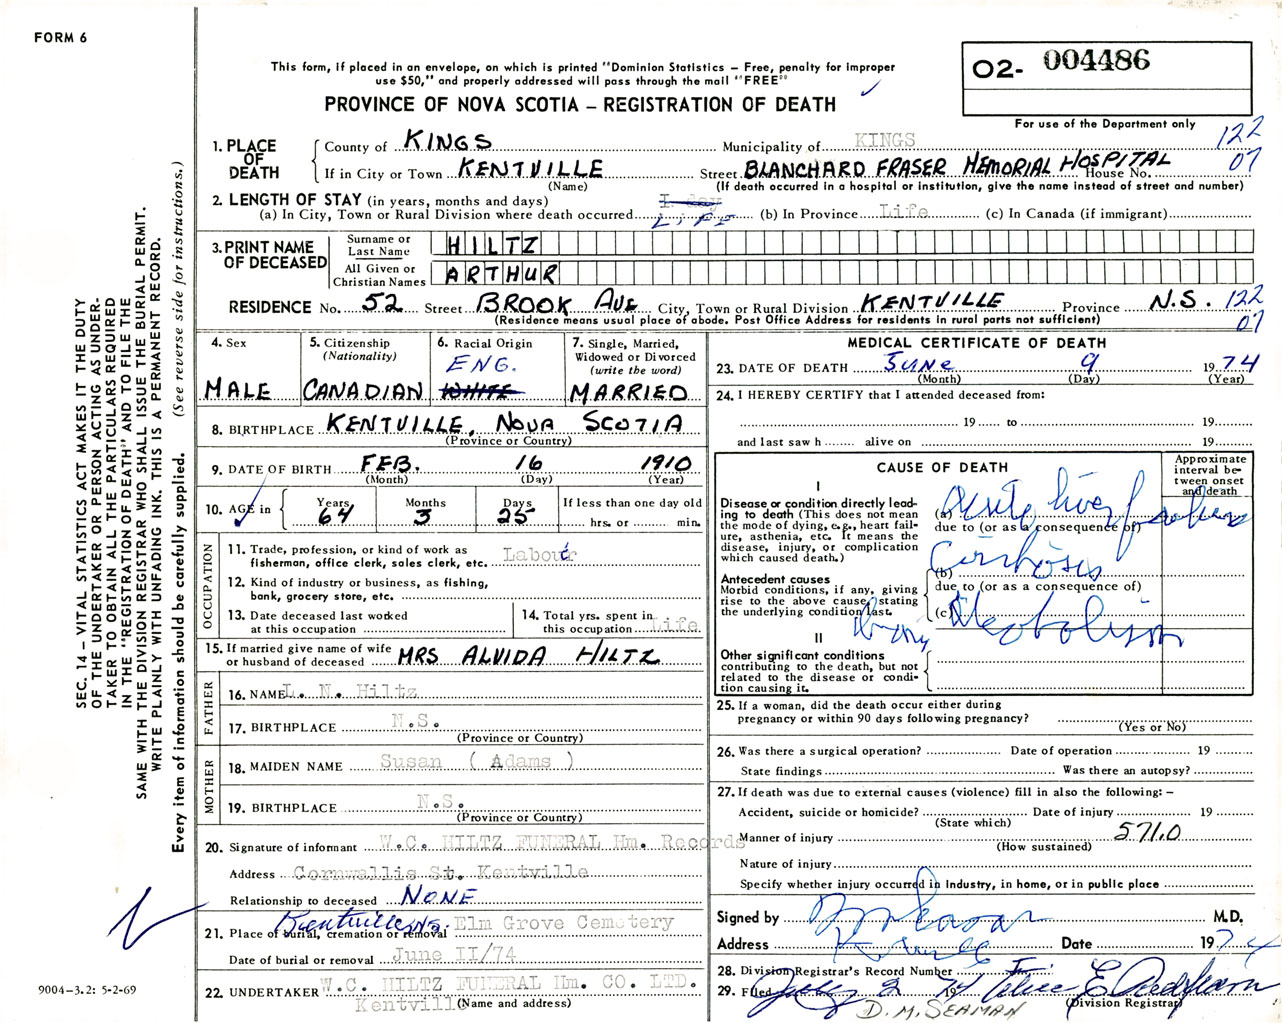 FORM 6
O2- 004486
This form, if placed in an envelope, on which is printed "Dominion Statistics – Free, penalty for improper
use $50," and properly addressed will pass through the mail "FREE"
PROVINCE OF NOVA SCOTIA – REGISTRATION OF DEATH
For use of the Department only
122
07
1. PLACE OF DEATH
County of KINGS Municipality of KINGS
If in City or Town KENTVILLE Street BLANCHARD FRASER MEMORIAL HOSPITAL House No.
(Name) (If death occurred in a hospital or institution, give the name instead of street and number)
2. LENGTH OF STAY (in years, months and days) I day
(a) In City, Town or Rural Division where death occurred LIFE (b) In Province Life (c) In Canada (if immigrant)
3. PRINT NAME OF DECEASED
Surname or Last Name HILTZ
All Given or Christian Names ARTHUR
RESIDENCE No. 52 Street BROOK AVE City, Town or Rural Division KENTVILLE Province N.S. 122
(Residence means usual place of abode. Post Office Address for residents in rural parts not sufficient) 07
4. Sex MALE
5. Citizenship (Nationality) CANADIAN
6. Racial Origin ENG. WHITE
7. Single, Married, Widowed or Divorced (write the word) MARRIED
8. BIRTHPLACE KENTVILLE, NOVA SCOTIA
(Province or Country)
9. DATE OF BIRTH FEB. 16 1910
(Month) (Day) (Year)
10. AGE in Years 64 Months 3 Days 25 If less than one day old
hrs. or min.
OCCUPATION
11. Trade, profession, or kind of work as
fisherman, office clerk, sales clerk, etc. Labour
12. Kind of industry or business, as fishing,
bank, grocery store, etc.
13. Date deceased last worked
at this occupation
14. Total yrs. spent in
this occupation Life
15. If married give name of wife
or husband of deceased MRS ALVIDA HILTZ
FATHER
16. NAME L. N. Hiltz
17. BIRTHPLACE N.S.
(Province or Country)
MOTHER
18. MAIDEN NAME Susan ( Adams )
19. BIRTHPLACE N.S.
(Province or Country)
20. Signature of informant W.C. HILTZ FUNERAL Hm. Records
Address Cornwallis St. Kentville
Relationship to deceased NONE
21. Place of burial, cremation or removal Kentville N.S. Elm Grove Cemetery
Date of burial or removal June II/74
22. UNDERTAKER W.C. HILTZ FUNERAL Hm. CO. LTD.
Kentville (Name and address)
MEDICAL CERTIFICATE OF DEATH
23. DATE OF DEATH JUNE 9 1974
(Month) (Day) (Year)
24. I HEREBY CERTIFY that I attended deceased from:
19 to 19
and last saw h alive on 19
CAUSE OF DEATH
Approximate interval between onset and death
I
Disease or condition directly leading to death (This does not mean the mode of dying, e.g., heart failure, asthenia, etc. It means the disease, injury, or complication which caused death.)
(a) Acute liver failure
due to (or as a consequence of)
Antecedent causes
Morbid conditions, if any, giving rise to the above cause, stating the underlying condition last.
(b) Cirrhosis
due to (or as a consequence of)
(c) Alcoholism
II
Other significant conditions contributing to the death, but not related to the disease or condition causing it.
25. If a woman, did the death occur either during
pregnancy or within 90 days following pregnancy?
(Yes or No)
26. Was there a surgical operation? Date of operation 19
State findings Was there an autopsy?
27. If death was due to external causes (violence) fill in also the following: –
Accident, suicide or homicide? Date of injury 19
(State which)
Manner of injury 571.0
(How sustained)
Nature of injury
Specify whether injury occurred in Industry, in home, or in public place
Signed by M.D.
Address Date 1974
28. Division Registrar's Record Number
29. Filed July 2 1974
(Division Registrar)
D.M. SEAMAN
SEC. 14 – VITAL STATISTICS ACT MAKES IT THE DUTY
OF THE UNDERTAKER OR PERSON ACTING AS UNDER-
TAKER TO OBTAIN ALL THE PARTICULARS REQUIRED
IN THE "REGISTRATION OF DEATH" AND TO FILE THE
SAME WITH THE DIVISION REGISTRAR WHO SHALL ISSUE THE BURIAL PERMIT.
WRITE PLAINLY WITH UNFADING INK. THIS IS A PERMANENT RECORD.
Every item of information should be carefully supplied. (See reverse side for instructions.)
9004-3.2: 5-2-69